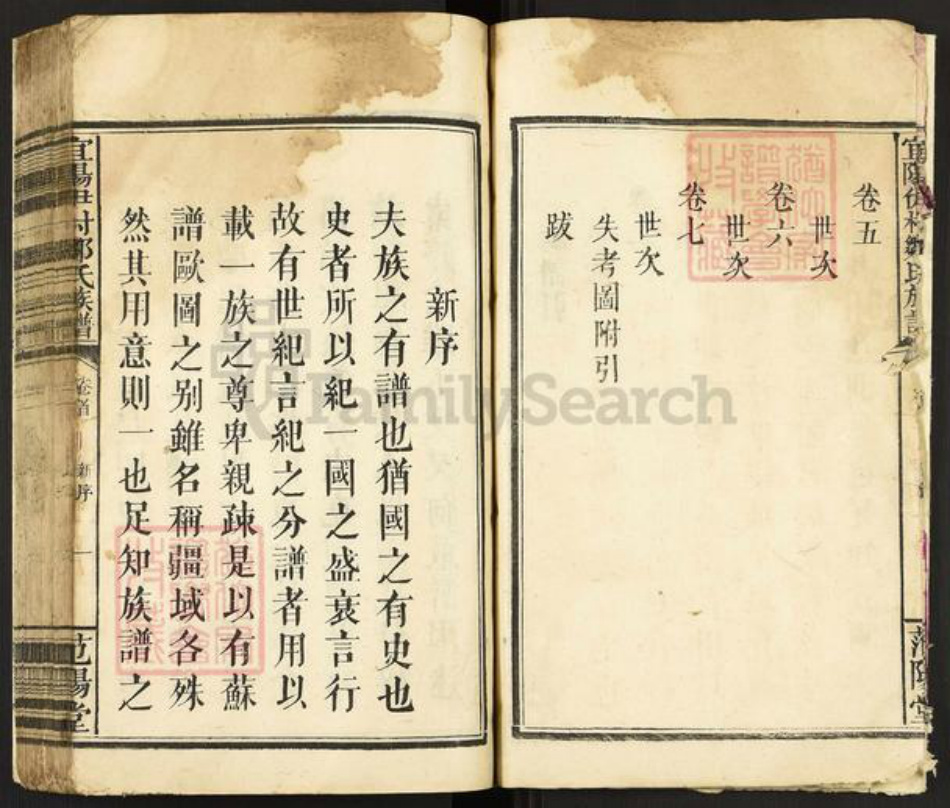 卷五
世次
卷六
世次
卷七
世次
失考圖附引
跋
范陽堂
新序
夫族之有譜也猶國之有史也
史者所以紀一國之盛衰言行
故有世紀言紀之分譜者用以
載一族之尊卑親疎是以有蘇
譜歐圖之别雖名稱疆域各殊
然其用意則一也足知族譜之
氏族譜
卷首
新序
一
范陽堂
FamilySearch